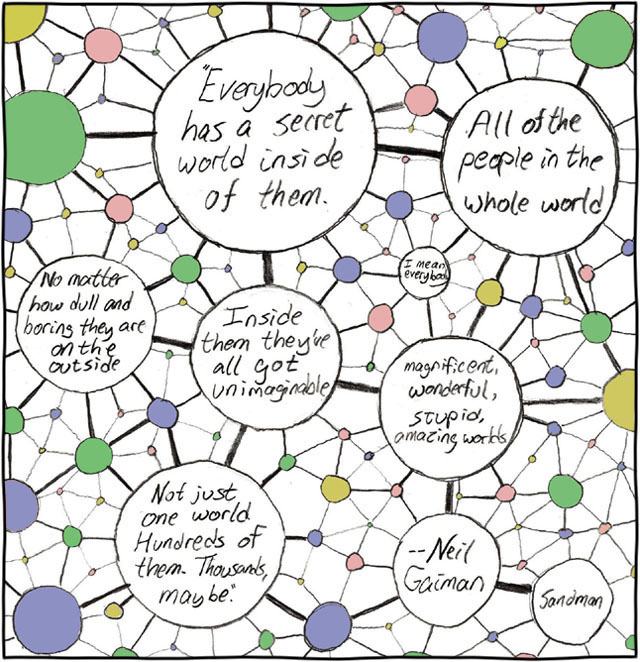 "Everybody
has a secret
world inside
of them.
All of the
people in the
whole world
I mean
everybody
No matter
how dull and
boring they are
on the
outside
Inside
them they've
all got
unimaginable
magnificent,
wonderful,
stupid,
amazing worlds
Not just
one world.
Hundreds of
them. Thousands,
maybe."
--Neil
Gaiman
Sandman